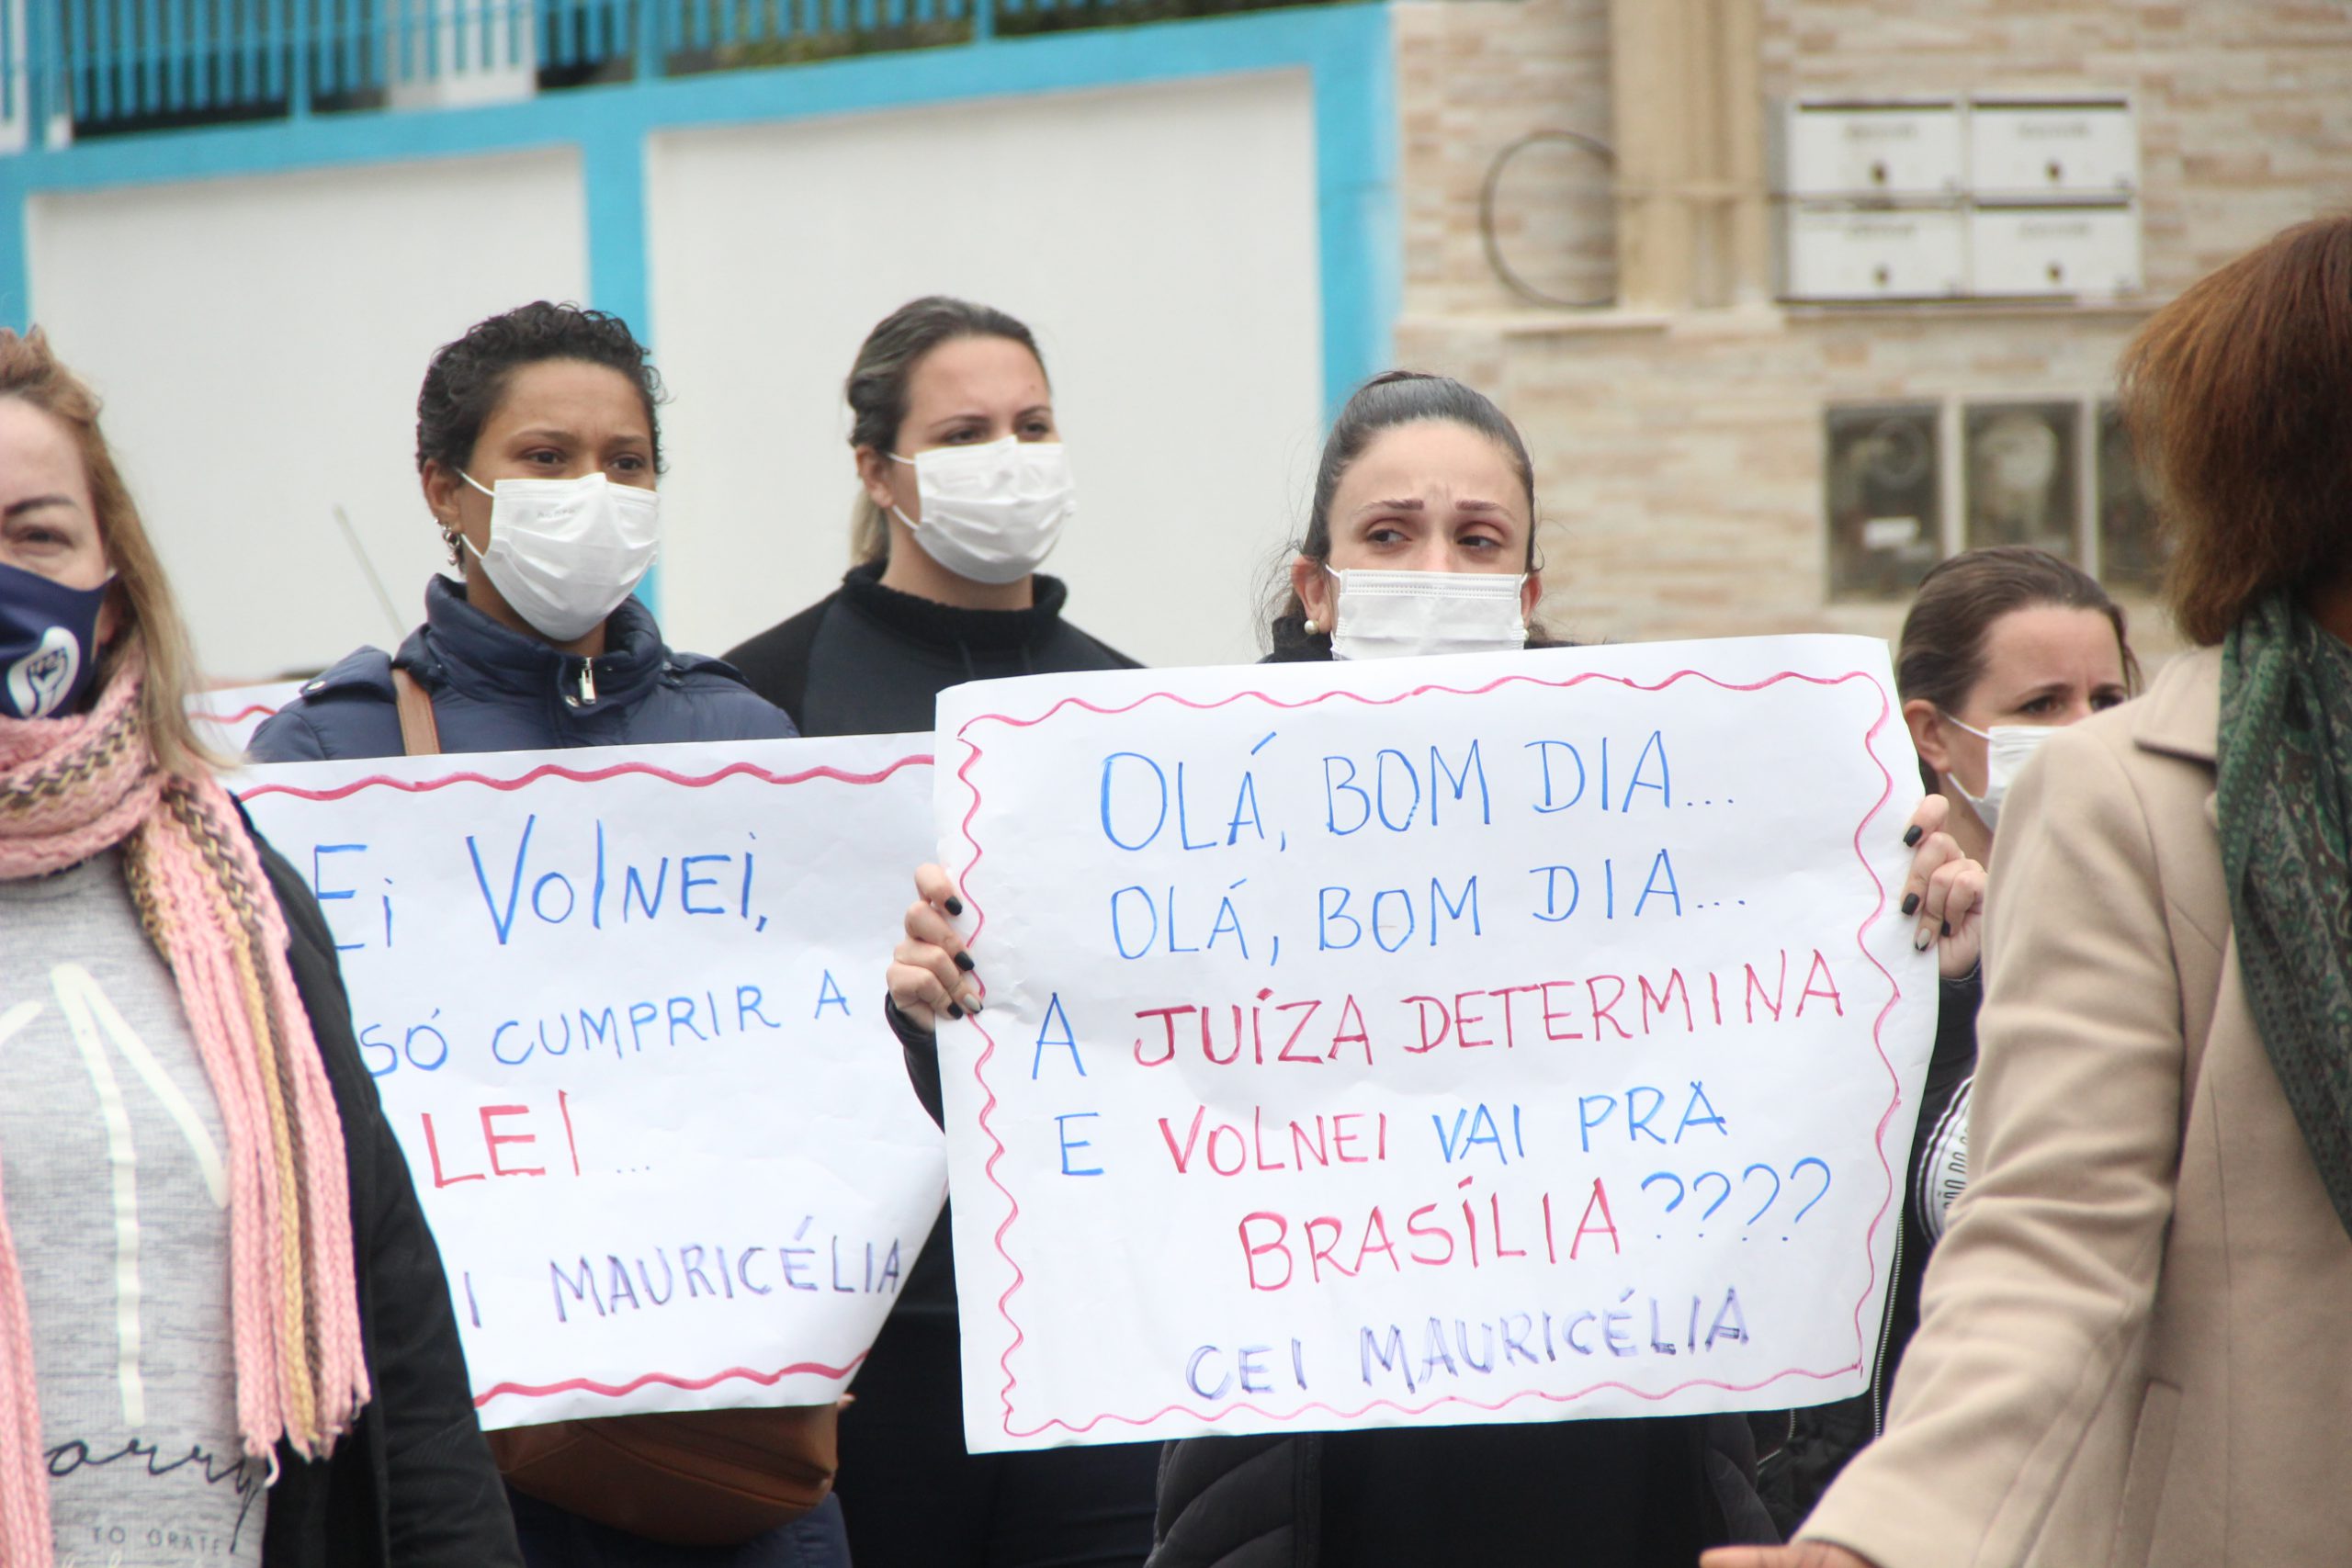 Ei VOlNEi,
SÓ CUMPRIR A
LEI...
I MAURICÉLIA
OLÁ, BOM DIA...
OLÁ, BOM DIA...
A JUÍZA DETERMINA
E VOLNEI VAI PRA
BRASÍLIA????
CEI MAURICÉLIA
orry
TO ORATE